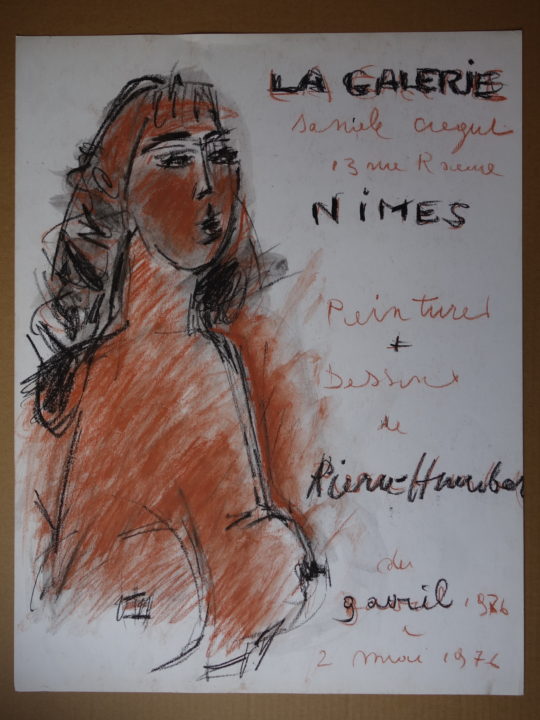 LA GALERIE
Daniele Cregut
13 rue Racine
NIMES
Peintures
+
Dessins
de
Pierre-Humber
du
9 avril 1976
à
2 mai 1976